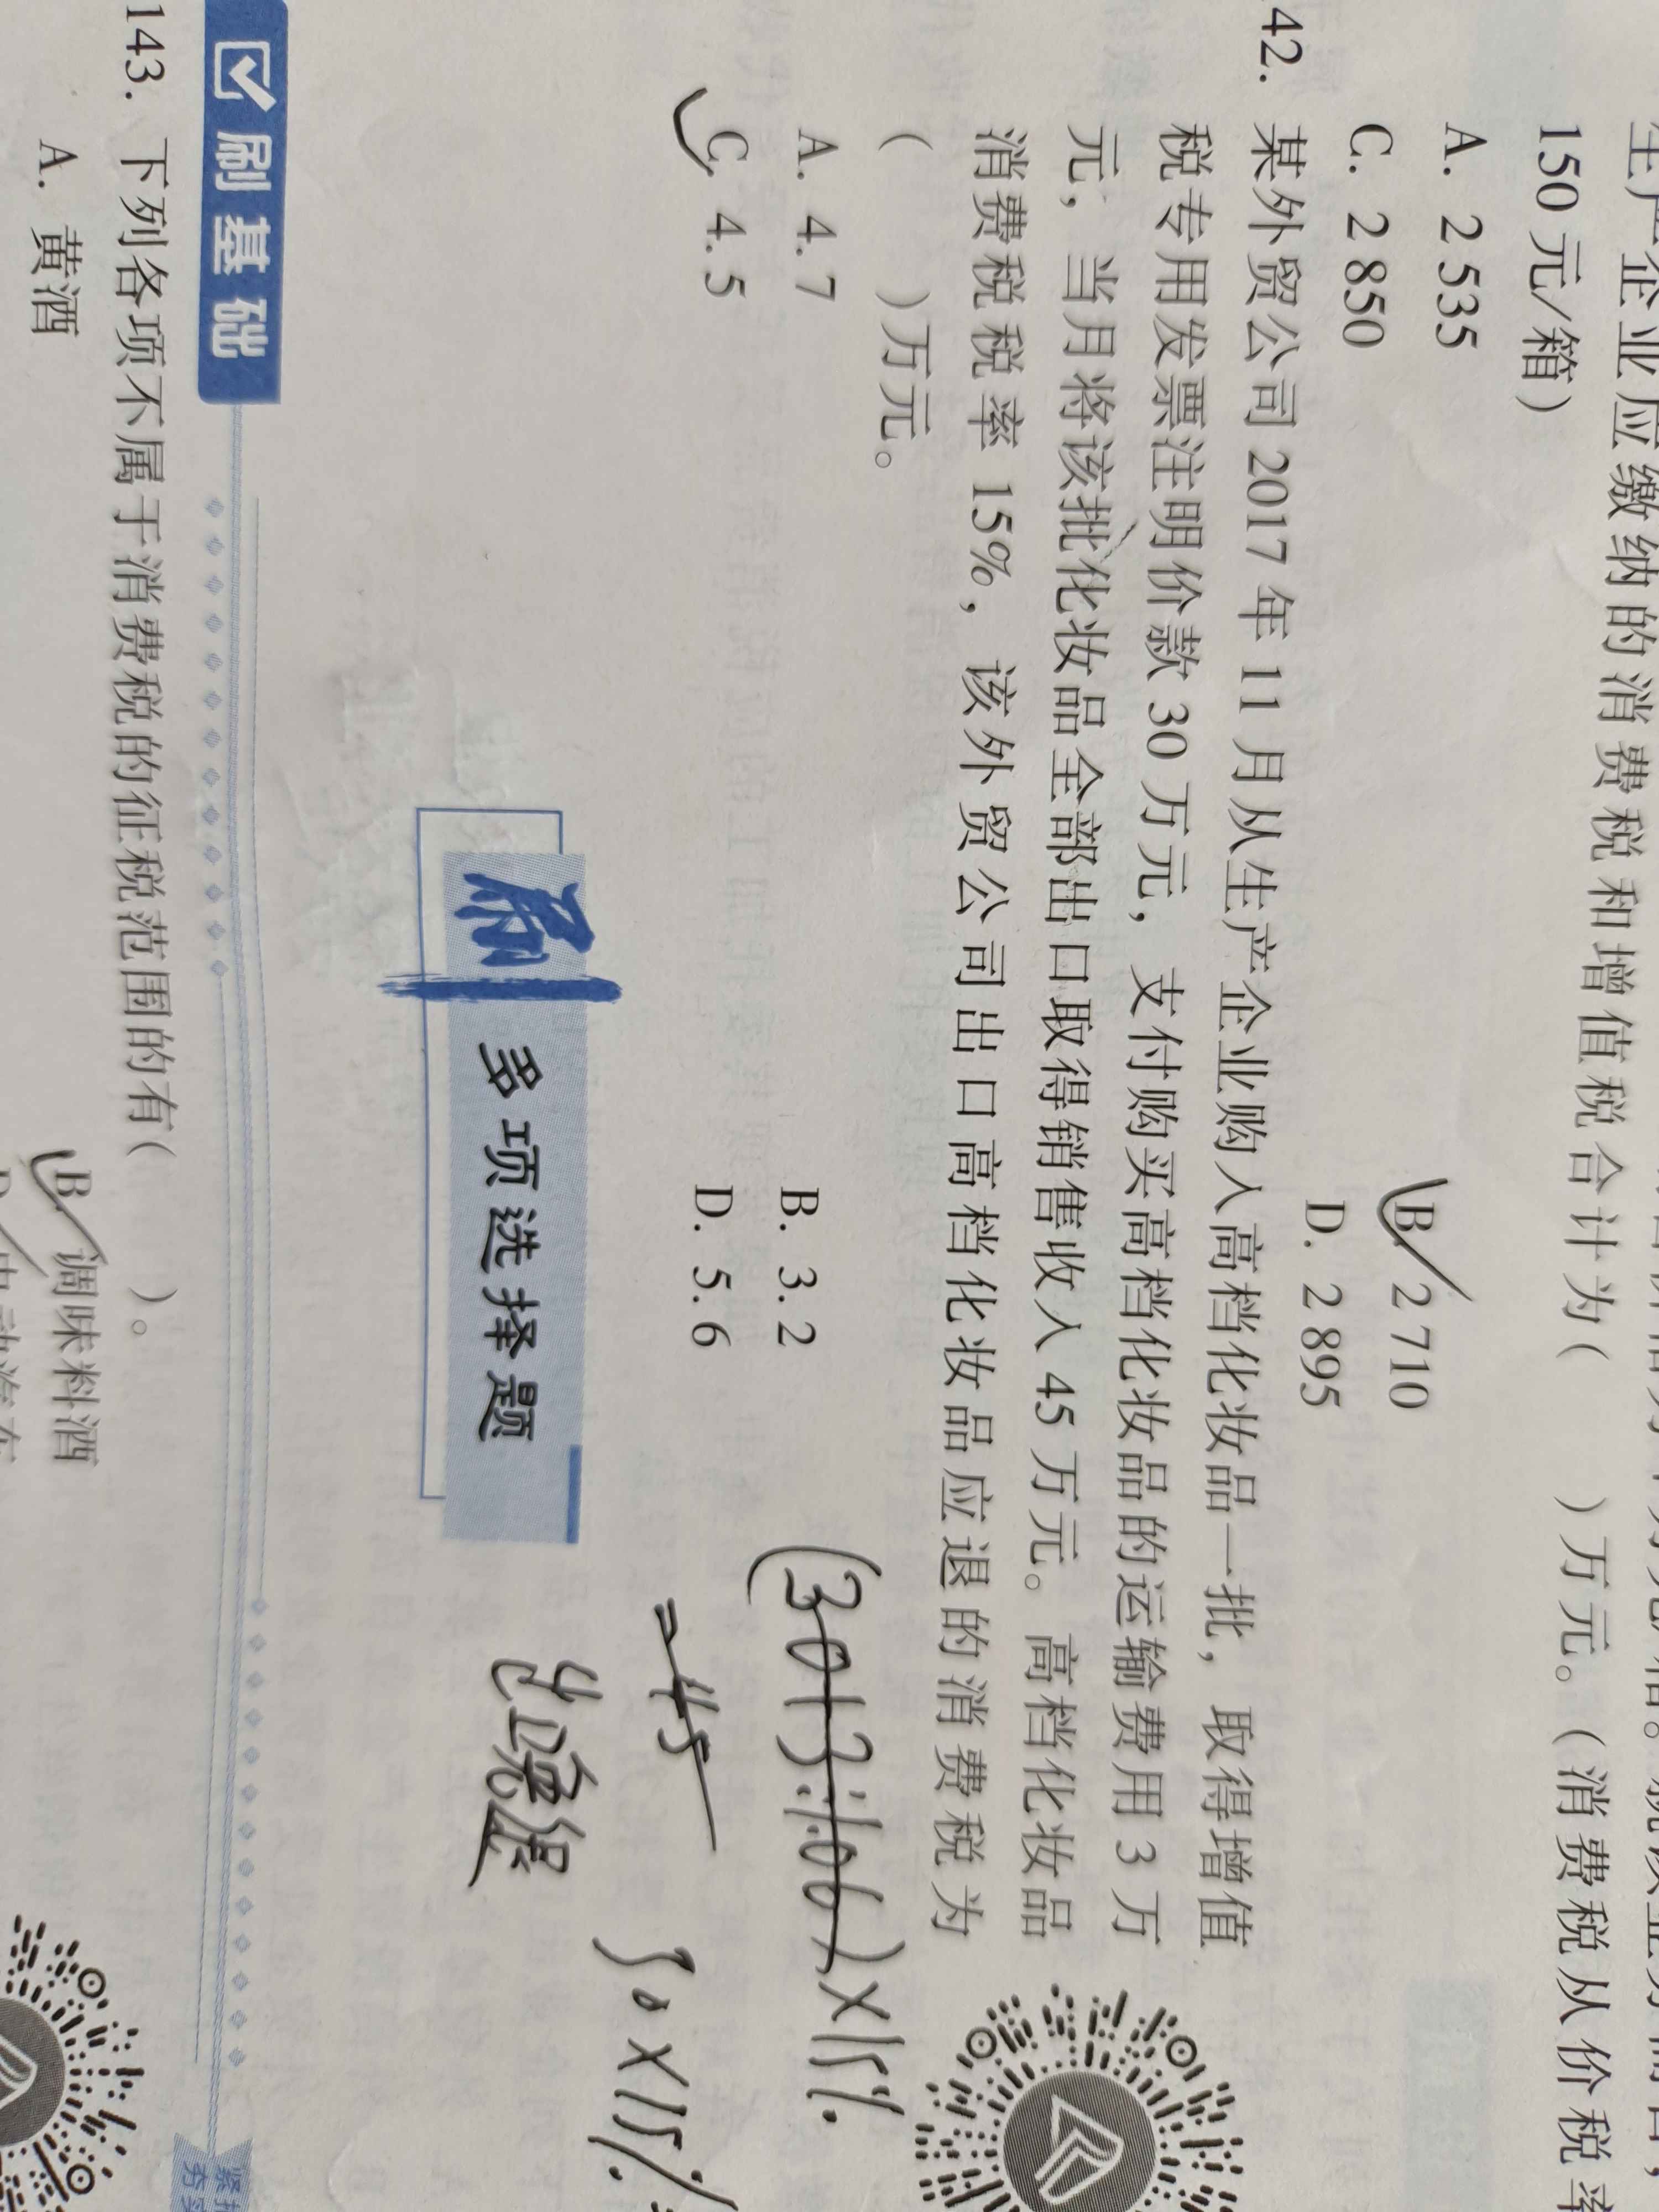 生产企业应缴纳的消费税和增值税合计为(　　)万元。(消费税从价税率
150元/箱)
A. 2 535
B. 2 710
C. 2 850
D. 2 895
42. 某外贸公司2017年11月从生产企业购入高档化妆品一批，取得增值
税专用发票注明价款30万元，支付购买高档化妆品的运输费用3万
元，当月将该批化妆品全部出口取得销售收入45万元。高档化妆品
消费税税率15%，该外贸公司出口高档化妆品应退的消费税为
(　　)万元。
A. 4.7
B. 3.2
C. 4.5
D. 5.6
(30+3÷1.06)×15%
=45
30×15%
刷 多项选择题
刷基础
143. 下列各项不属于消费税的征税范围的有(　　)。
A. 黄酒
B. 调味料酒